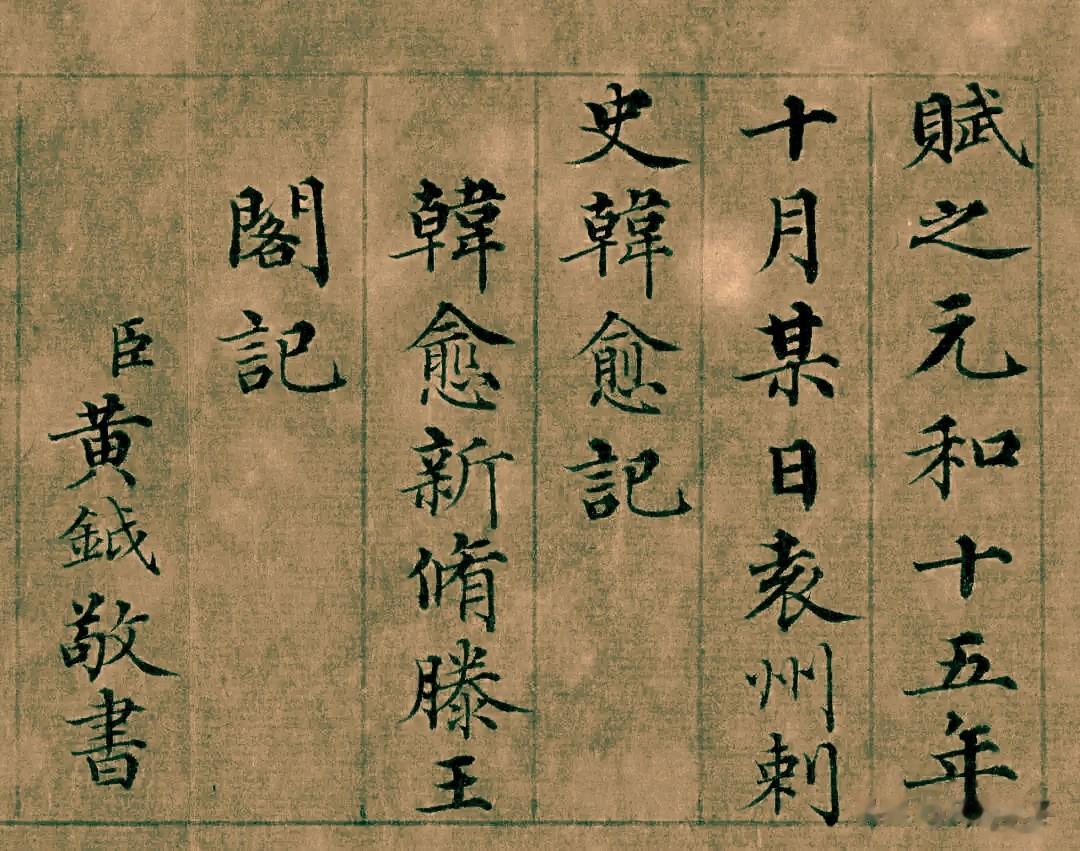 賦之元和十五年
十月某日袁州刺
史韓愈記
韓愈新脩滕王
閣記
臣黃鉞敬書